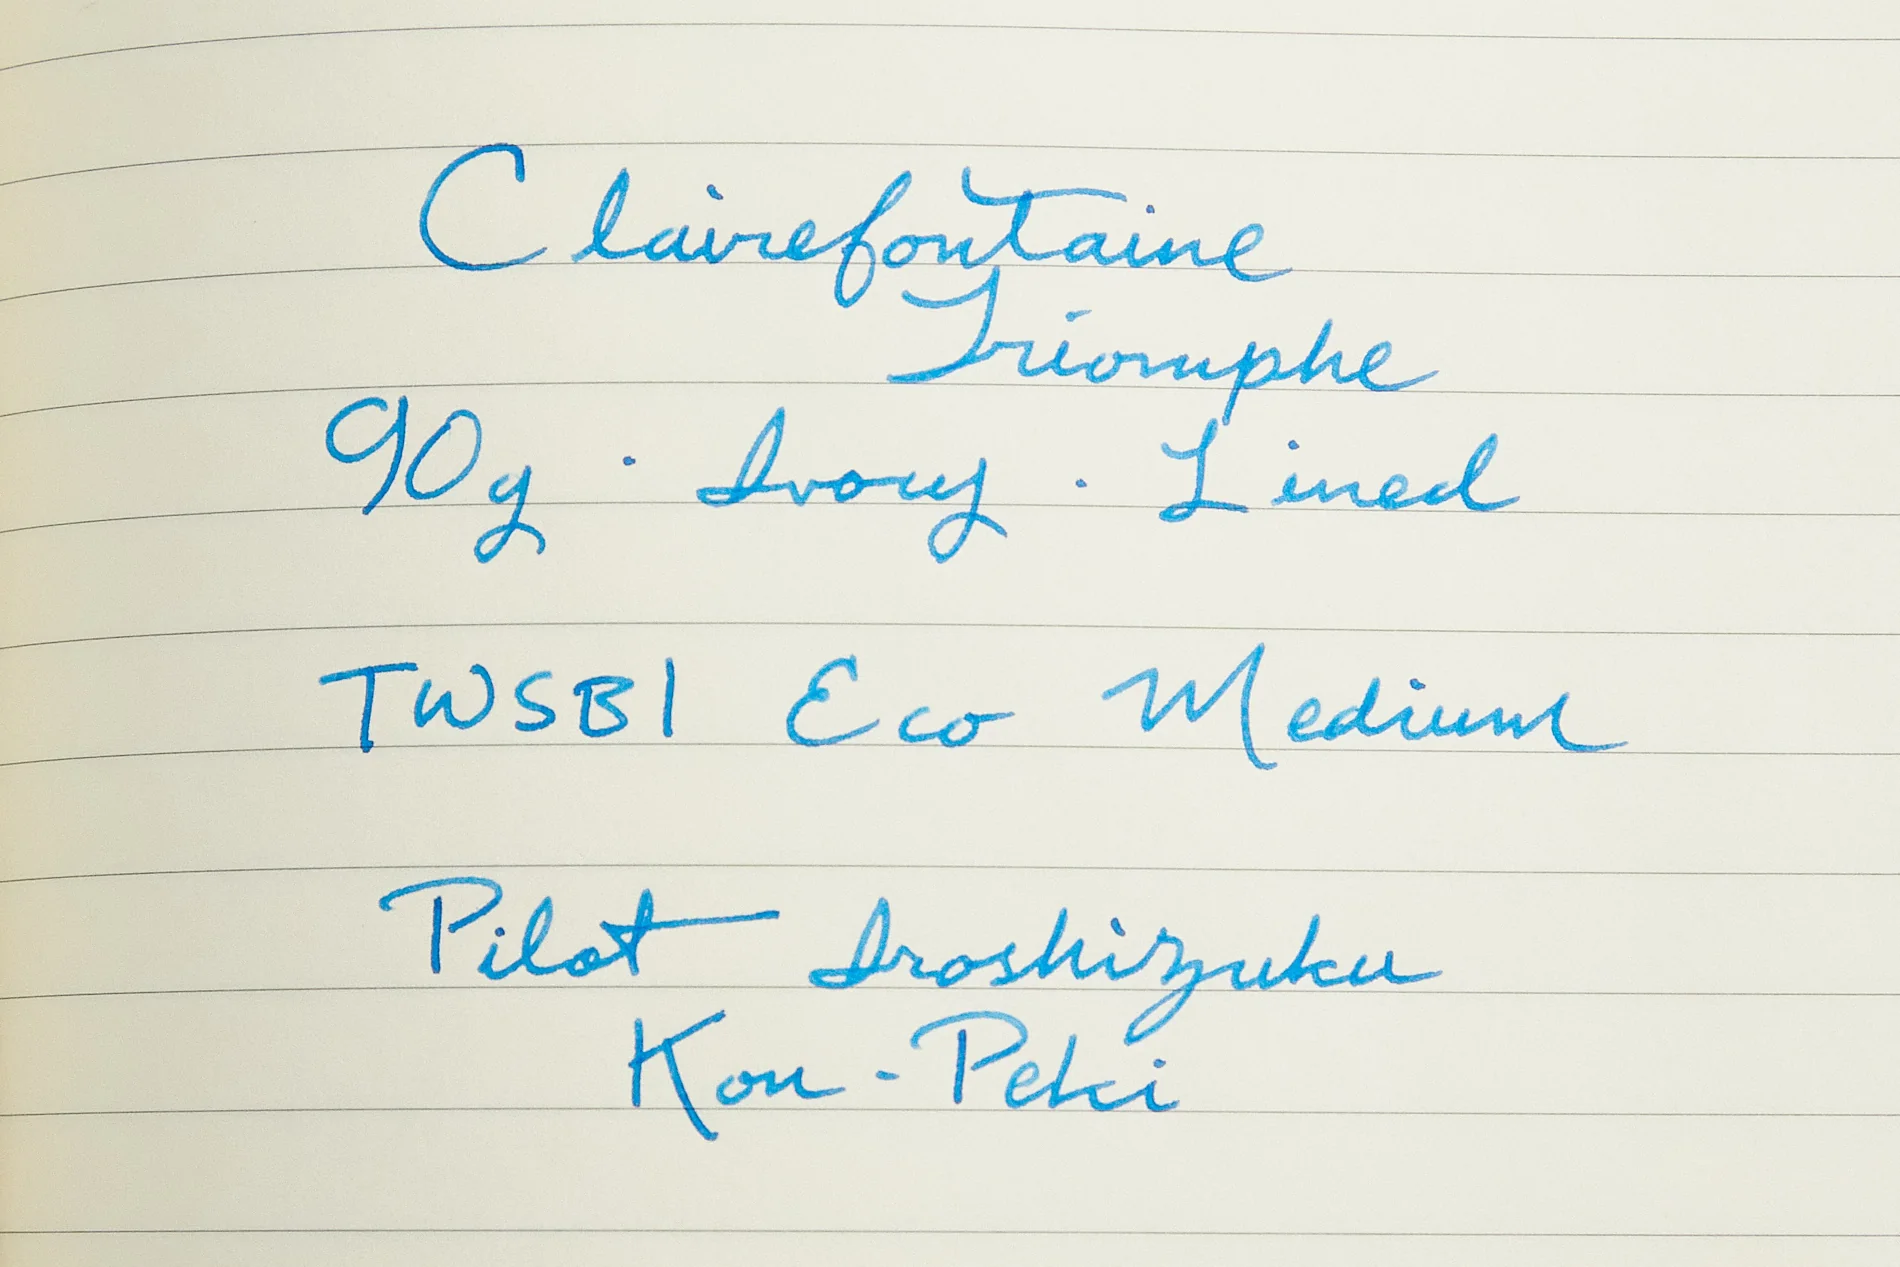 Clairefontaine
Triomphe
90g · Ivory · Lined
TWSBI Eco Medium
Pilot Iroshizuku
Kon-Peki